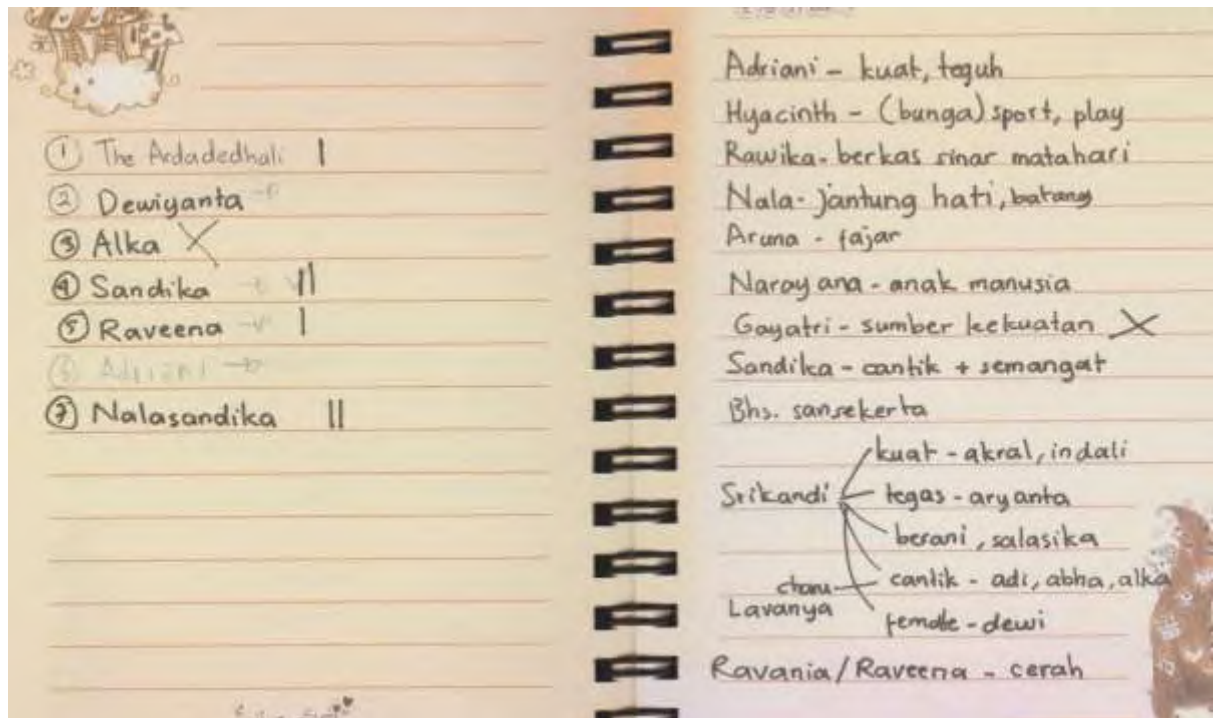 ① The Ardadedhali |
② Dewiyanta
③ Alka X
④ Sandika ||
⑤ Raveena |
⑥ Adriani
⑦ Nalasandika ||
Adriani - kuat, teguh
Hyacinth - (bunga) sport, play
Rawika - berkas sinar matahari
Nala - jantung hati, batang
Aruna - fajar
Narayana - anak manusia
Gayatri - sumber kekuatan X
Sandika - cantik + semangat
Bhs. sansekerta
kuat - akral, indali
Srikandi tegas - aryanta
berani, salasika
charu cantik - adi, abha, alka
Lavanya
female - dewi
Ravania/Raveena - cerah